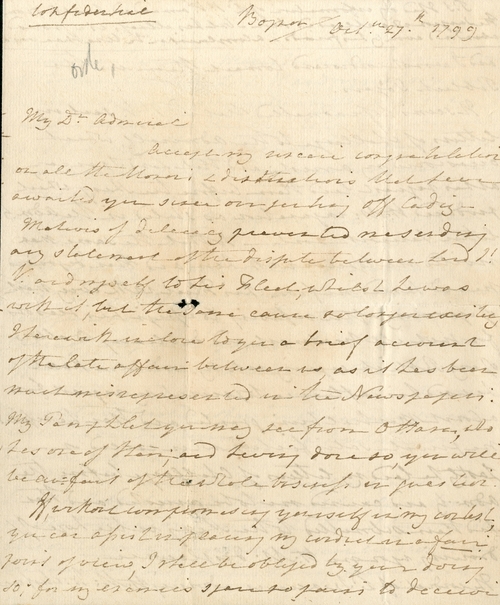 Confidential
Bognor Oct. 27th 1799
My Dr. Admiral
Accept my sincere congratulation
on all the Honors & distinctions that have
awaited you since our parting off Cadiz -
Motives of delicacy prevented me sending
any statement of the dispute between Lord St.
V. and myself to his Fleet, whilst he was
with it, but the same cause no longer existing
I herewith inclose to you a brief account
of the late affair between us as it has been
much misrepresented in the Newspapers.
My Pamphlet you may see from O'Hara, who
has one of them, and having done so you will
be au-fait of the whole business or
Without compromising yourself in my contest,
you can assist in placing my conduct in a fair
point of view, I shall be obliged by your doing
so; for my enemies spare no pains to deceive